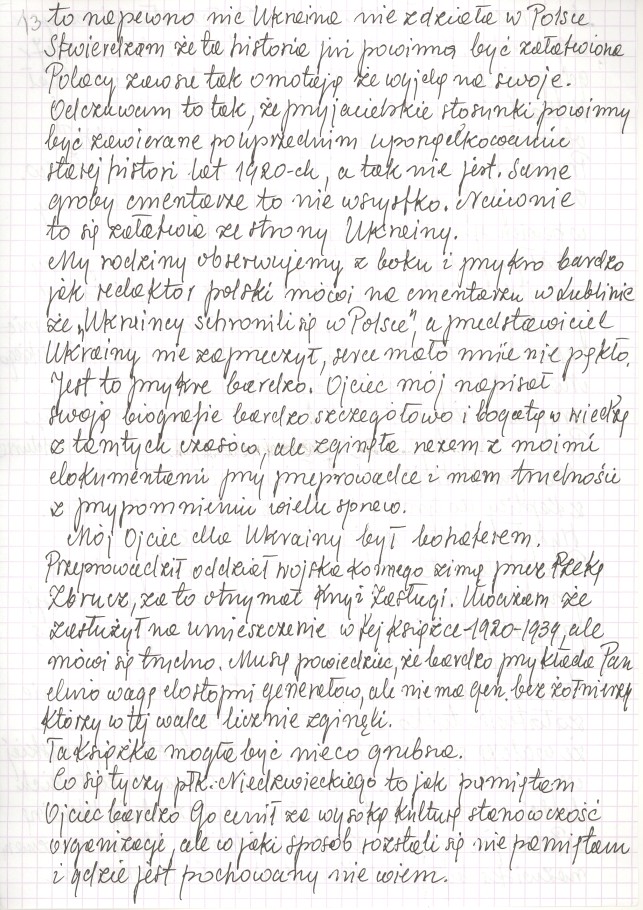 13 to napewno nic Ukraina nie zdziała w Polsce
Stwierdzam że ta historia już powinna być załatwiona
Polacy zawsze tak omotają że wyjdą na swoje.
Odczuwam to tak, że przyjacielskie stosunki powinny
być zawierane po uprzednim uporządkowaniu
starej histori lat 1920-ch, a tak nie jest. Same
groby cmentarze to nie wszystko. Naiwnie
to się załatwia ze strony Ukrainy.
My rodziny obserwujemy z boku i przykro bardzo
jak redaktór polski mówi na cmentarzu w Lublinie
że „Ukraińcy schronili się w Polsce", a przedstawiciel
Ukrainy nie zaprzeczył, serce mało mnie nie pękło.
Jest to przykre bardzo. Ojciec mój napisał
swoją biografie bardzo szczegółowo i bogatą w wiedzę
z tamtych czasów, ale zginęła razem z moimi
dokumentami przy przeprowadzce i mam trudności
z przypomnieniem wielu spraw.
Mój Ojciec dla Ukrainy był bohaterem.
Przeprowadził oddział wojska konnego zimą przez Rzekę
Zbrucz, za to otrzymał Krzyż Zasługi. Uważam że
zasłużył na umieszczenie w tej książce 1920-1939, ale
mówi się trudno. Muszę powiedzieć, że bardzo przykłada Pan
dużo wagę do stopni generałów, ale nie ma gen. bez żołnierzy
którzy w tej walce licznie zginęli.
Ta książka mogła być nieco grubsza.
Co się tyczy płk. Niedzwieckiego to jak pamiętam
Ojciec bardzo Go cenił za wysoką kulturę stanowczość
organizacje, ale w jaki sposób rozstali się nie pamiętam
i gdzie jest pochowany nie wiem.